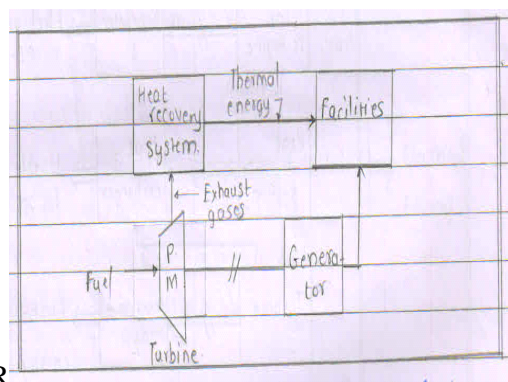 Heat
recovery
system.
Thermal
energy
Facilities
Exhaust
gases
Fuel
P
M
Genera-
tor
Turbine
R